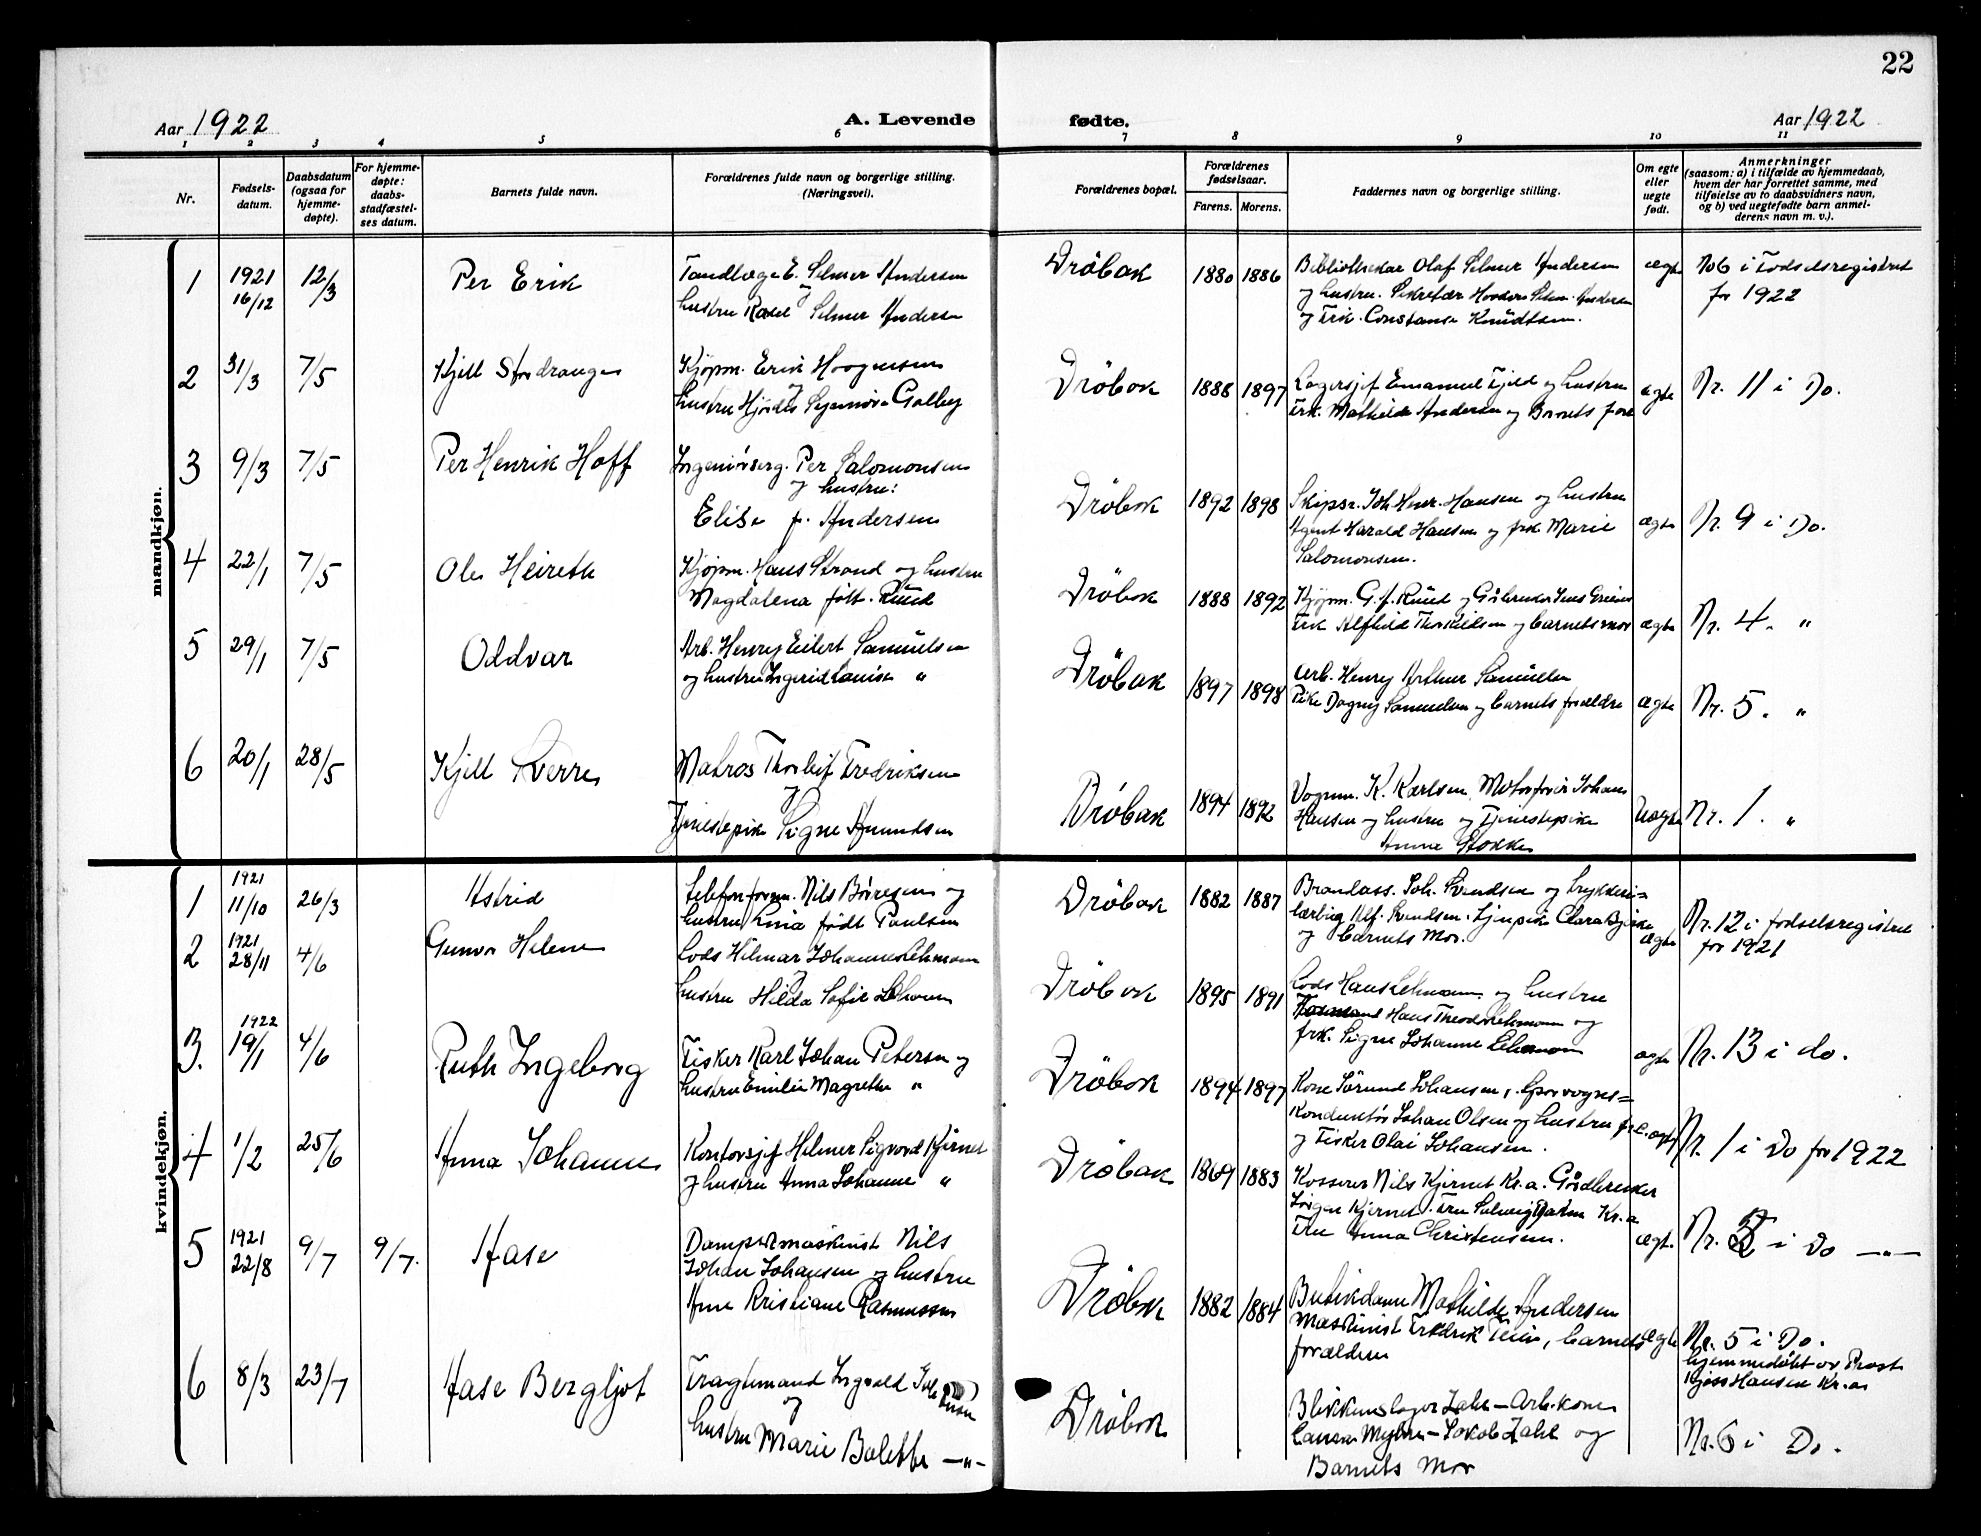 22
Aar 1922
A. Levende fødte.
Aar 1922
1 2 3 4 5 6 7 8 9 10 11
Nr.
Fødsels-
datum.
Daabsdatum
(ogsaa for
hjemme-
døpte).
For hjemme-
døpte:
daabs-
stadfæstel-
ses datum.
Barnets fulde navn.
Forældrenes fulde navn og borgerlige stilling.
(Næringsvei).
Forældrenes bopæl.
Forældrenes
fødselsaar.
Farens. Morens.
Faddernes navn og borgerlige stilling.
Om egte
eller
uegte
født.
Anmerkninger
(saasom: a) i tilfælde av hjemmedaab,
hvem der har forrettet samme, med
tilføielse av to daabsvidners navn,
og b) ved uegtefødte barn anmel-
derens navn m. v.).
mandkjøn.
1
1921
16/12
12/3
Per Erik
Tandlæge E. Selmer Andersen
og
hustru Selmer Andersen
Drøbak
1880 1886
Bibliothekar Olaf Selmer Andersen
og hustru. Sekretær Andersen
og Frk. Constanse Knudtsen.
ægte
No 6 i Fødselsregistret
for 1922
2
31/3
7/5
Kjell Stordrange
Kjøpm. Erik Haagensen
og
hustru Hjørdis Galby
Drøbak
1888 1897
Lagersjef Emanuel Fjeld og hustru
Frk. Mathilde Andersen og Barnets far
ægte
Nr. 11 i Do.
3
9/3
7/5
Per Henrik Hoff
Per Salomonsen
og hustru:
Elise f. Andersen
Drøbak
1892 1898
Skipsr. Joh. Henr. Hansen og hustru
Agent Harald Hansen og frk Marie
Salomonsen.
ægte
Nr. 9 i Do.
4
22/1
7/5
Ole Heireth
Kjøpm. Hans Strand og hustru
Magdalena født. Ruud
Drøbak
1888 1892
Kjøpm. G. f. Ruud og Jens
Frk Alfhild Thorkildsen og barnets mor
ægte
Nr. 4. "
5
29/1
7/5
Oddvar
Arb. Henry Eilert Samuelsen
og hustru Ingerid Louise "
Drøbak
1897 1898
Arb. Henry Arthur Samuelsen
Pike Dagny Samuelsen og barnets forældre
ægte
Nr. 5. "
6
20/1
28/5
Kjell Sverre
Matros Thorleif Fredriksen
og
Tjenestepike Signe Amundsen
Drøbak
1894 1892
Vognm. K. Karlsen, Motorfører Johans
Hansen og hustru og Tjenestepike
Anna Stokke
Uægte
Nr. 1. "
kvindekjøn.
1
1921
11/10
26/3
Astrid
Telefonform. Nils Børresen og
hustru Lina født Paulsen
Drøbak
1882 1887
Brandass. Joh. Svendsen og trykkeri-
lærling Alf. Svendsen. Tjnpike Clara Bjerke
og barnets Mor.
ægte
Nr. 12 i fødselsregistret
for 1921
2
1921
28/11
4/6
Gunvor Helene
Lods Hilmar Johannes Lehmann
og
hustru Hilda Sofie Lehmann
Drøbak
1895 1891
Lods Hans Lehmann og hustru
Hans Theodor Lehmann og
frk. Signe Johanne Lehmann
ægte
Nr. 13 i do.
3.
1922
19/1
4/6
Ruth Ingeborg
Fisker Karl Johan Petersen og
hustru Emilie Magrethe "
Drøbak
1894 1897
Kone Jørund Johansen, Sporvogns-
Konduktør Johan Olsen og hustru
og Fisker Olai Johansen.
ægte
Nr. 1 i Do for 1922
4
1/2
25/6
Anna Johanne
Kontorsjef Helmer Sigvard Kjernet
og hustru Anna Johanne "
Drøbak
1869 1883
Kasserer Nils Kjernet Kr.a. Gårdbruker
Jørgen Kjernet. Fru Solveig Kr.a
Fru Anna Christensen.
ægt.
Nr. 3 i Do —"—
5
1921
22/8
9/7
9/7.
Aase
Dampskmaskinist Nils
Johan Johansen og hustru
Ane Kristiane Rasmussen
Drøbak
1882 1884
Butikdame Mathilde Andersen
Maskinist Fredrik Teien, barnets
forældre
ægte
Nr. 5 i Do.
hjemmedøbt av Prest
Hansen Kr.a
6
8/3
23/7
Aase Bergljot
Fragtemand Ingvald
og
hustru Marie Bolette —"—
Drøbak
Blikkenslager Zahl — Arb. kone
Laura Myhre — Jakob Zahl og
Barnets Mor
Nr. 6 i Do.